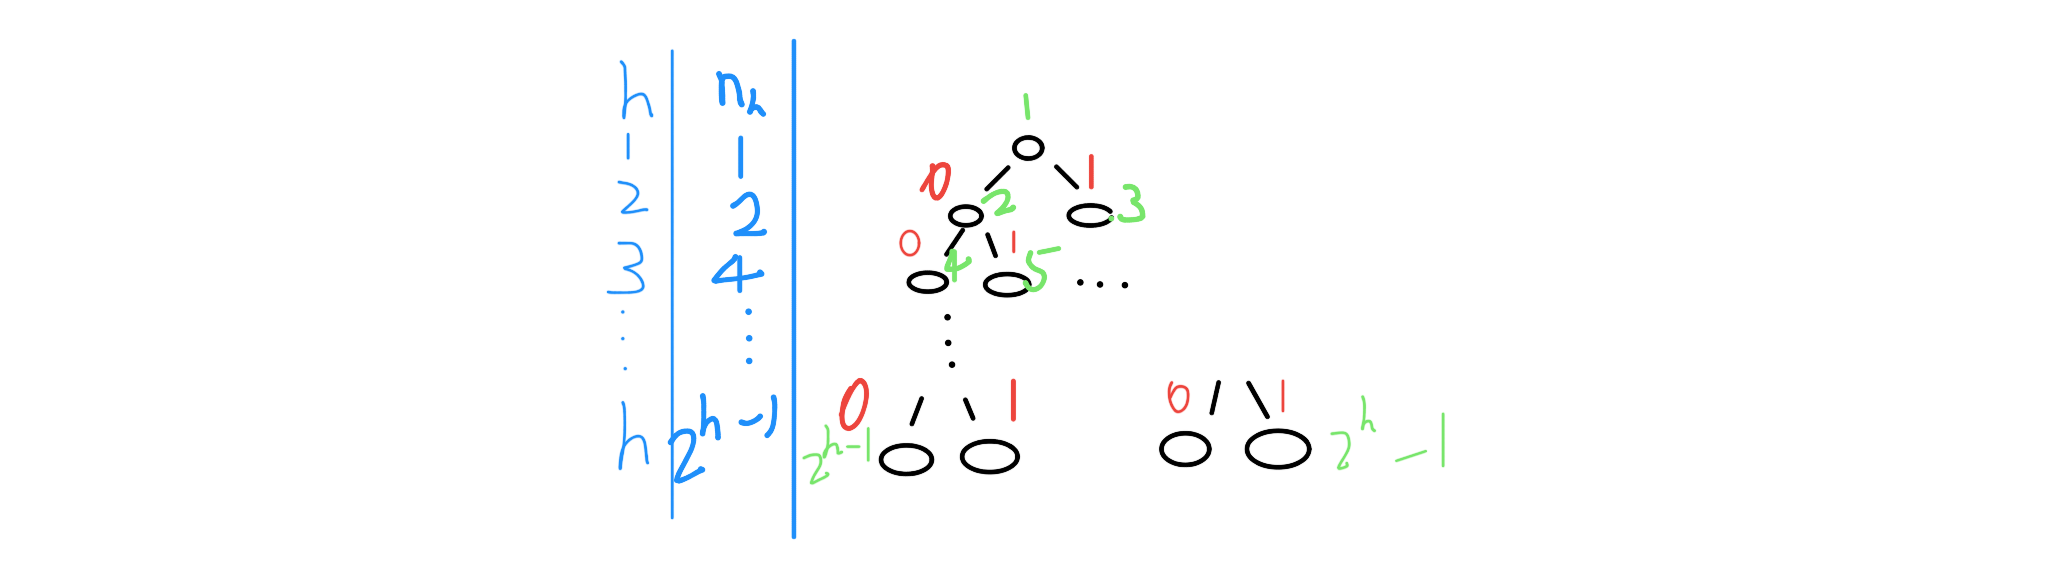 h n_h
1 1
2 2
3 4
⋮ ⋮
h 2^{h-1}
1
0 1
2 3
0 1
4 5 ...
⋮
0 1 0 1
2^{h-1} 2^h - 1